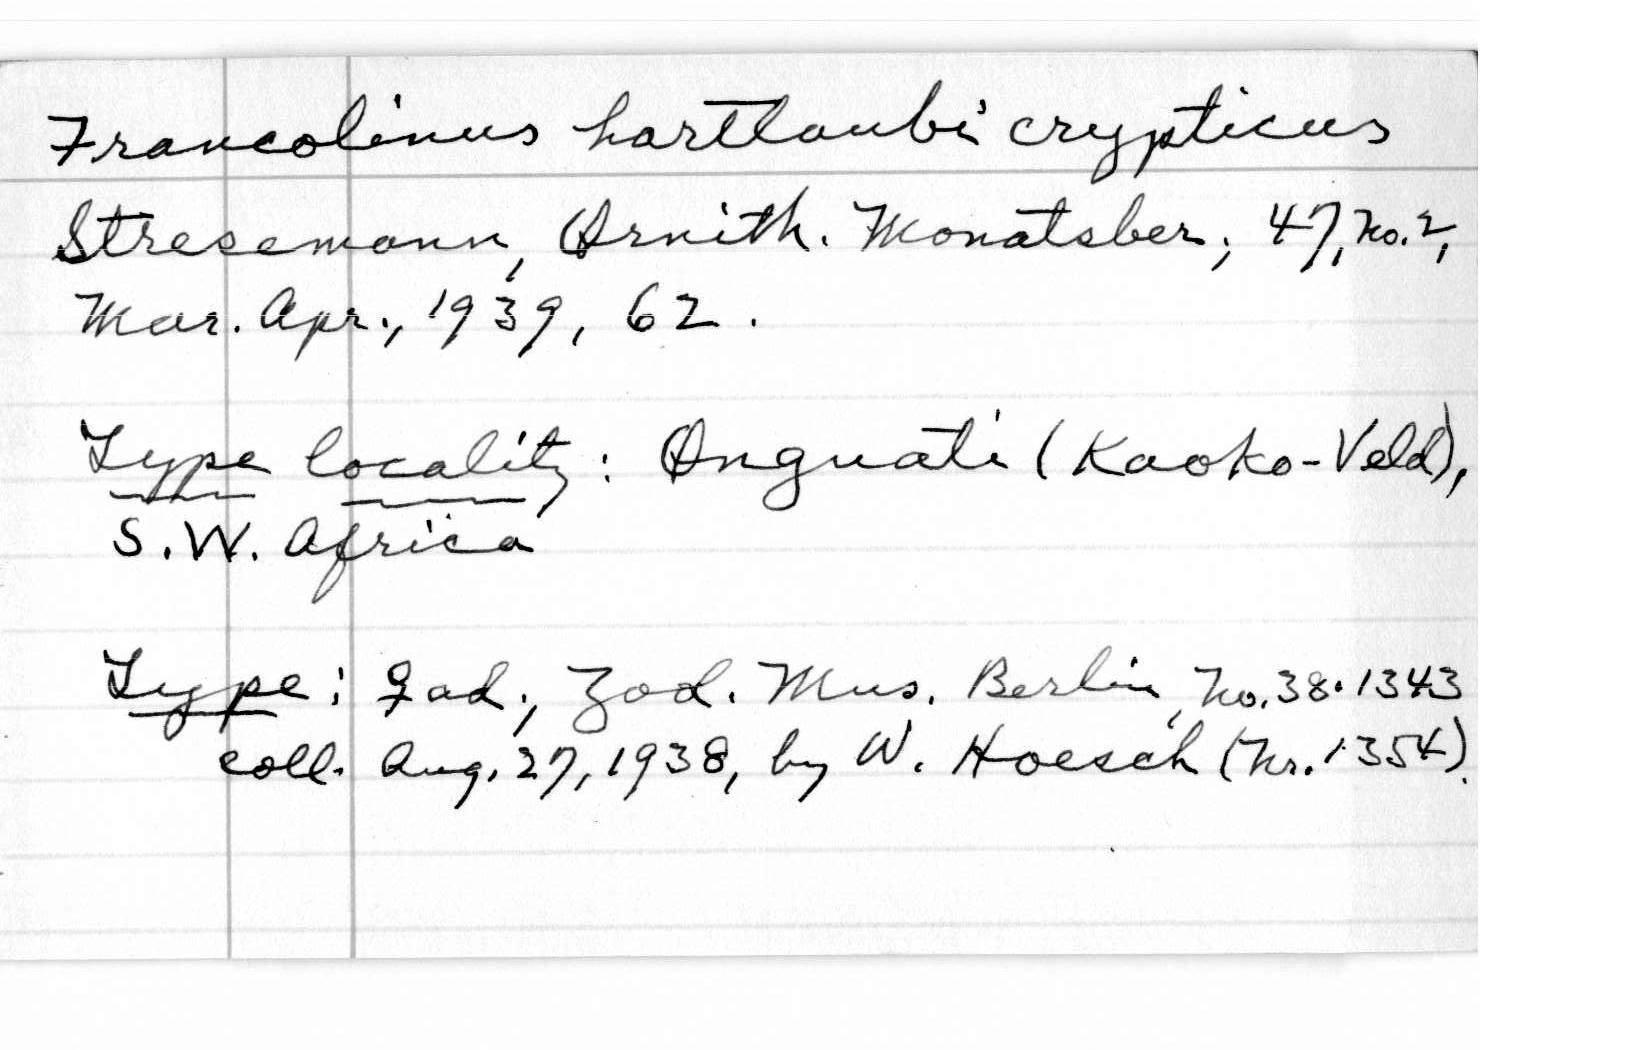 Francolinus hartlaubi crypticus
Stresemann, Ornith. Monatsber., 47, no. 2,
Mar. Apr., 1939, 62.
Type locality: Onguati (Kaoko-Veld),
S.W. Africa
Type: ♀ ad., Zool. Mus. Berlin, No. 38.1343
coll. Aug. 27, 1938, by W. Hoesch (Nr. 1354).